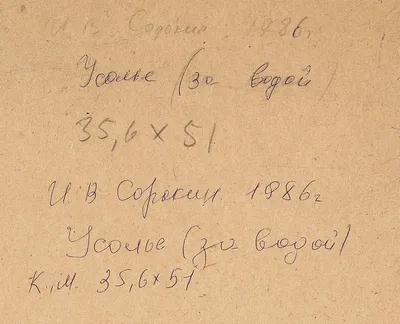 И. В. Сорокин 1986г
Усолье (за водой)
35,6 x 51
И. В Сорокин. 1986г
Усолье (за водой)
К.,М. 35,6 x 51